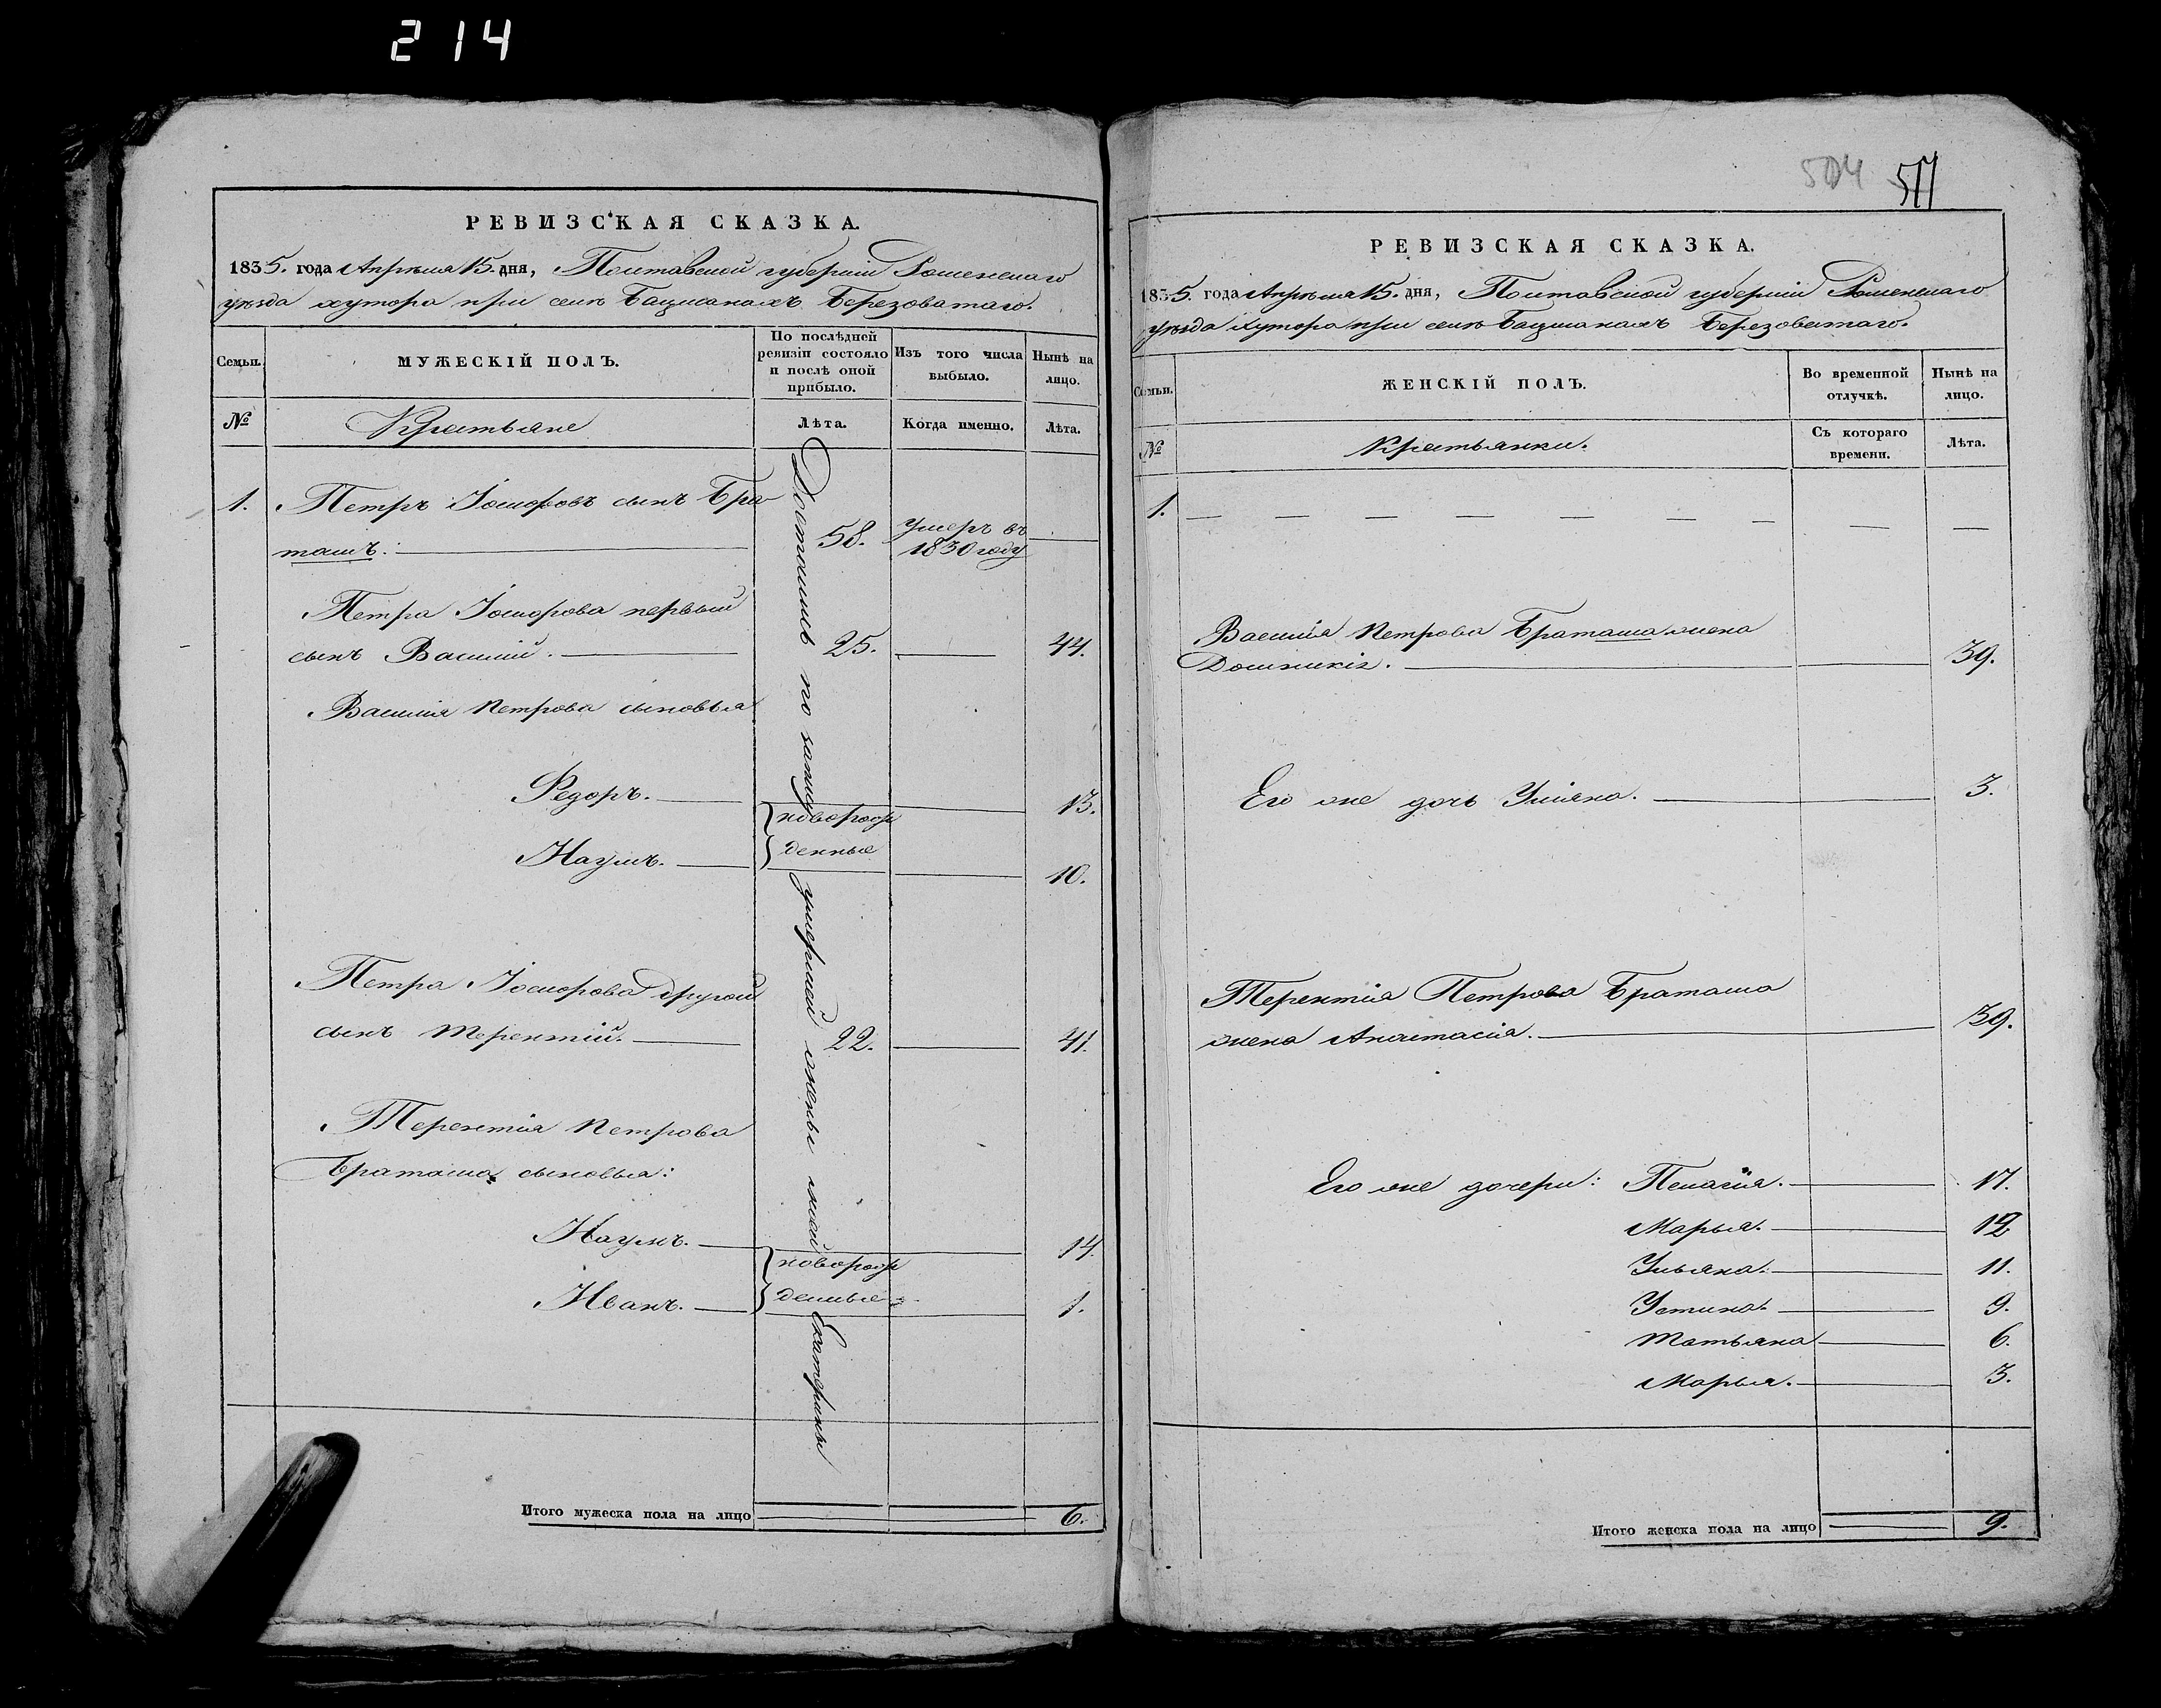 214
РЕВИЗСКАЯ СКАЗКА.
1835. года Апрѣля 15. дня, Полтавской губерніи Роменскаго
уѣзда хутора при селѣ Бацманахъ Березоватаго.
Семьи.
МУЖЕСКІЙ ПОЛЪ.
По послѣдней
ревизіи состояло
и послѣ оной
прибыло.
Изъ того числа
выбыло.
Нынѣ на
лицо.
№
Крестьяне
Лѣта.
Когда именно.
Лѣта.
Достались по
умершей жены моей Екатерины
1. Петръ Іосифовъ сынъ Бра
ташъ: 58. умеръ въ
1830 году
Петра Іосифова первый
сынъ Василій. 25. 44.
Василія Петрова сыновья
Федоръ. 13.
новорож
Наумъ. денные 10.
Петра Іосифова другой
сынъ Терентій. 22. 41.
Терентія Петрова
Браташа сыновья:
Наумъ. 14.
новорож
Иванъ. денные 1.
Итого мужеска пола на лицо 6.
504 511
РЕВИЗСКАЯ СКАЗКА.
1835. года Апрѣля 15. дня, Полтавской губерніи Роменскаго
уѣзда хутора при селѣ Бацманахъ Березоватаго.
Семьи.
ЖЕНСКІЙ ПОЛЪ.
Во временной
отлучкѣ.
Нынѣ на
лицо.
№
Крестьянки.
Съ котораго
времени.
Лѣта.
1.
Василія Петрова Браташа жена
39.
Его же дочь Уліяна. 3.
Терентія Петрова Браташа
жена Анастасія. 39.
Его же дочери: Пелагія. 17.
Марья. 12
Ульяна. 11.
Устина. 9.
Татьяна 6.
Марья. 3.
Итого женска пола на лицо 9.